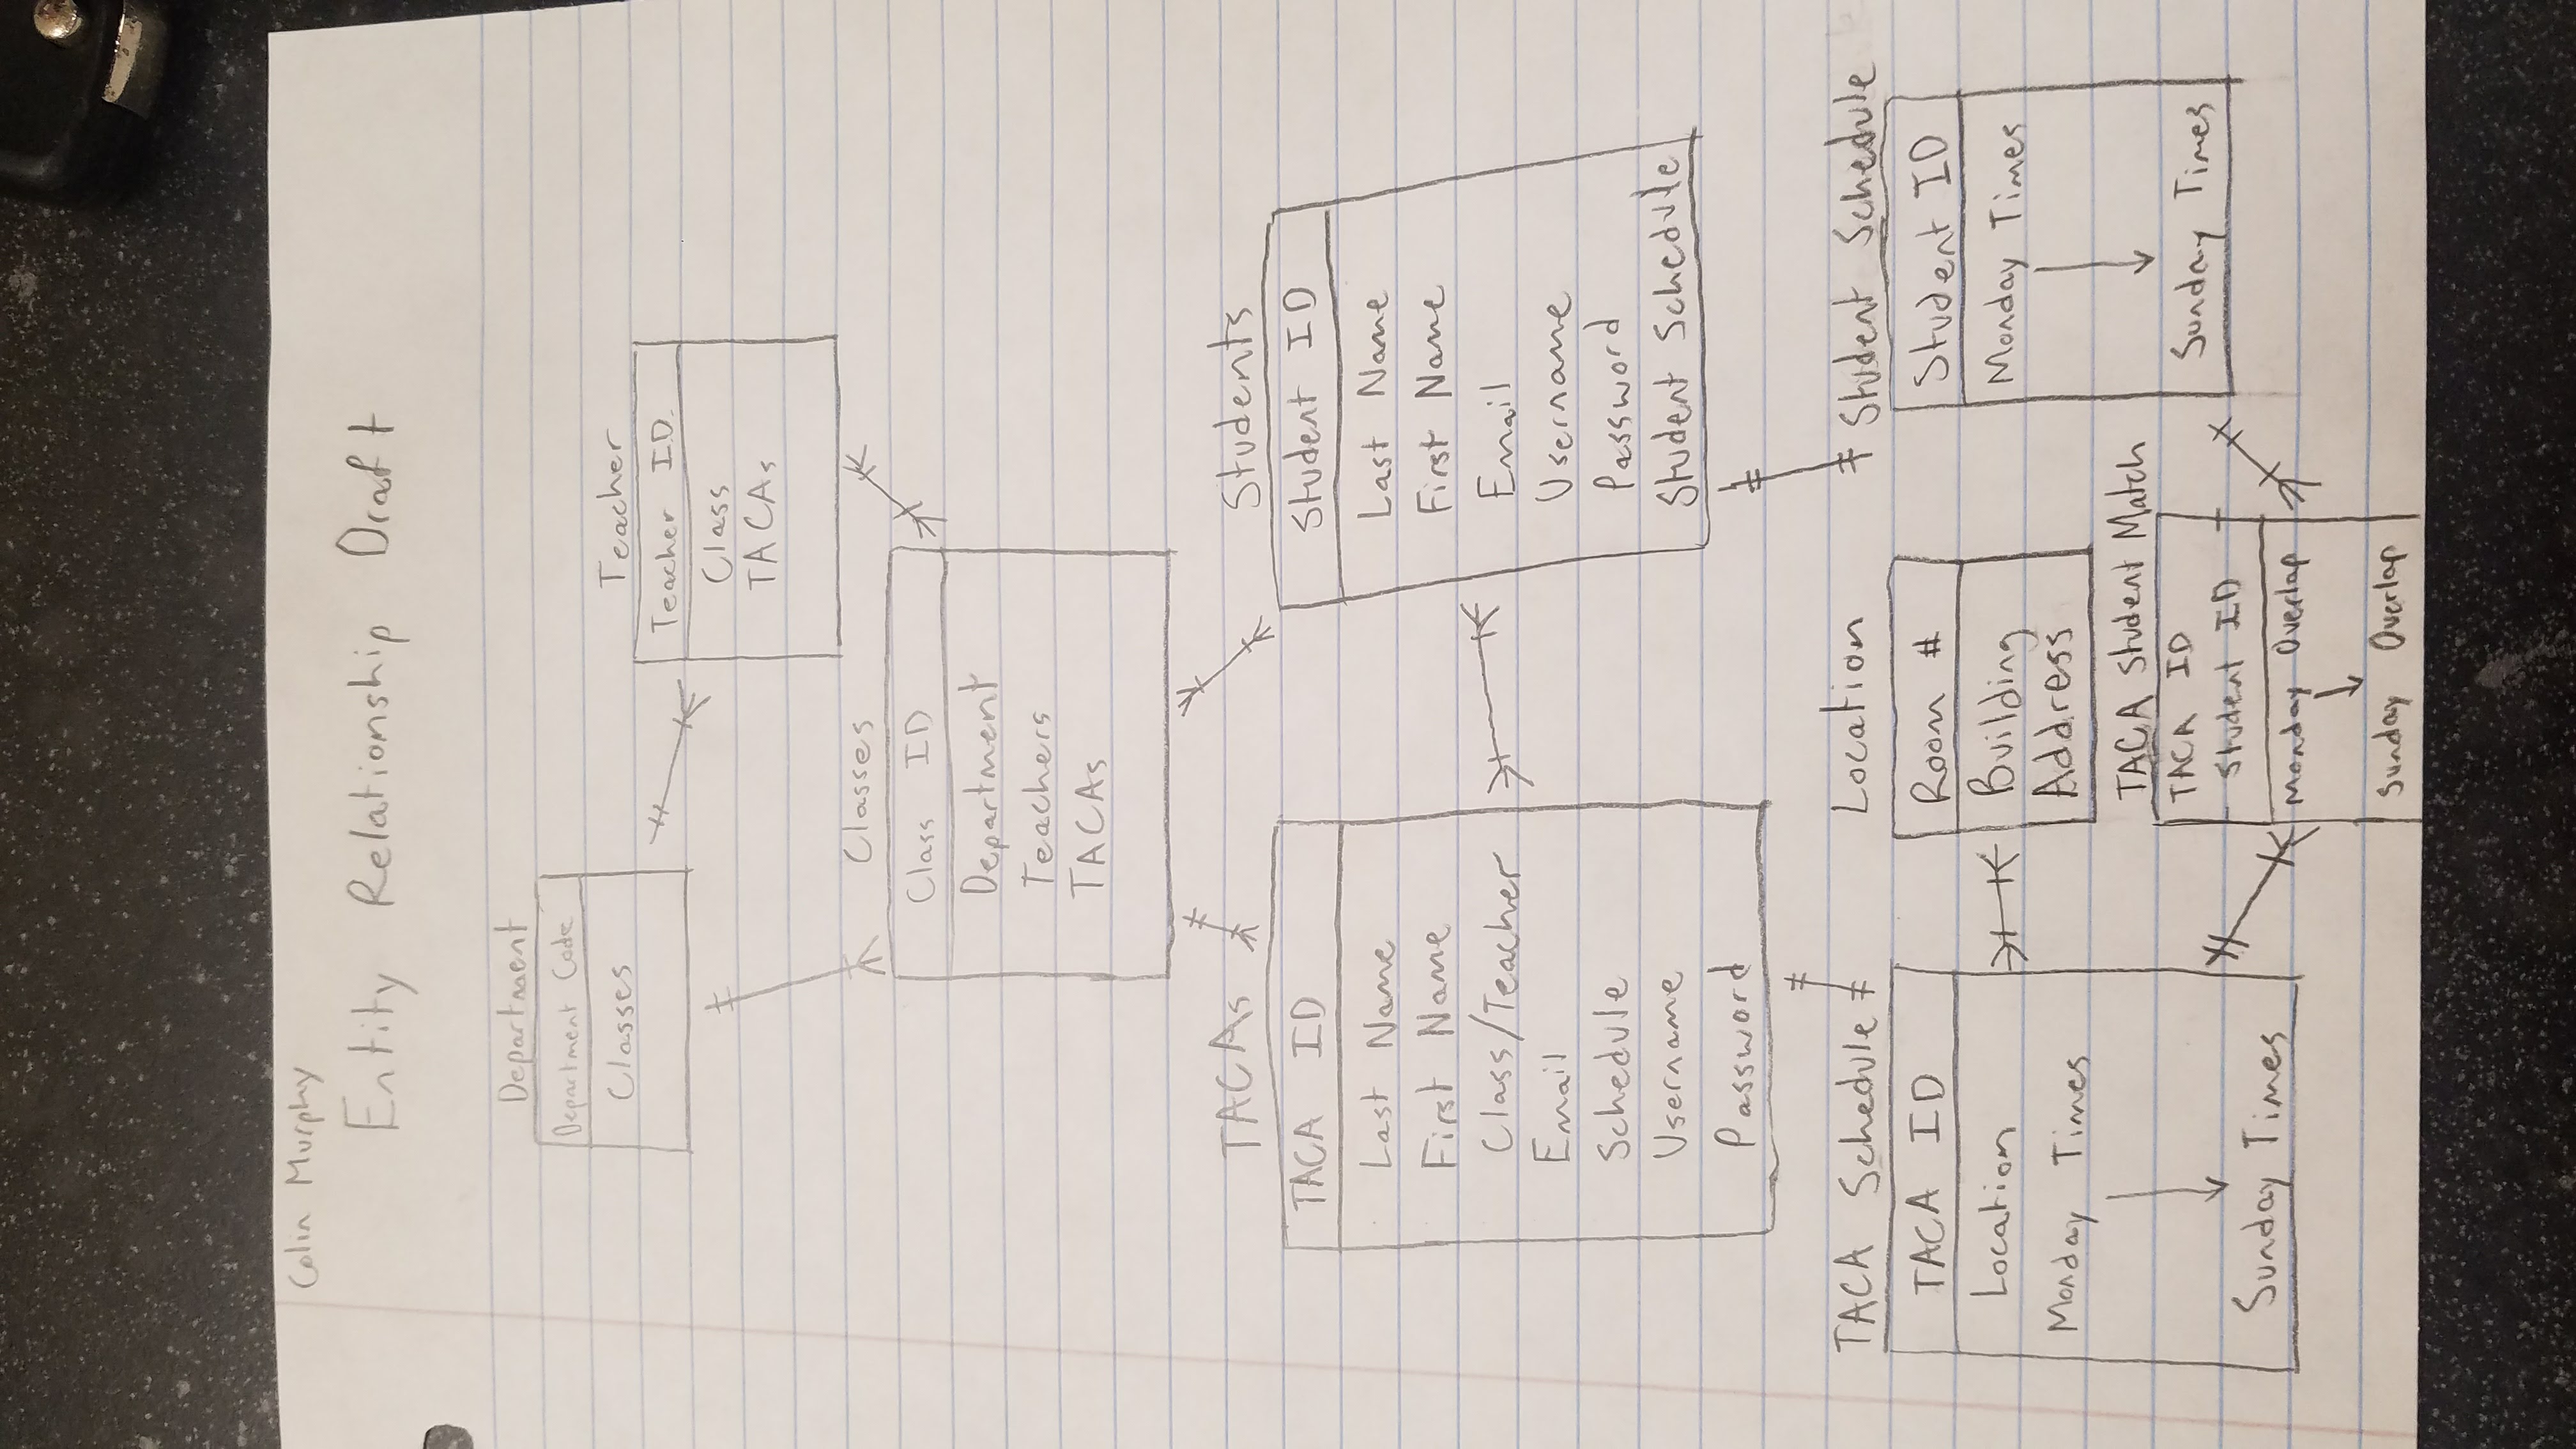 Colin Murphy
Entity Relationship Draft
Department
Department Code
Classes
Teacher
Teacher ID.
Class
TACAs
Classes
Class ID
Department
Teachers
TACAs
TACAs
TACA ID
Last Name
First Name
Class/Teacher
Email
Schedule
Username
Password
Students
Student ID
Last Name
First Name
Email
Username
Password
Student Schedule
TACA Schedule
TACA ID
Location
Monday Times
Sunday Times
Location
Room #
Building
Address
Student Schedule
Student ID
Monday Times
Sunday Times
TACA Student Match
TACA ID
Student ID
Monday Overlap
Sunday Overlap